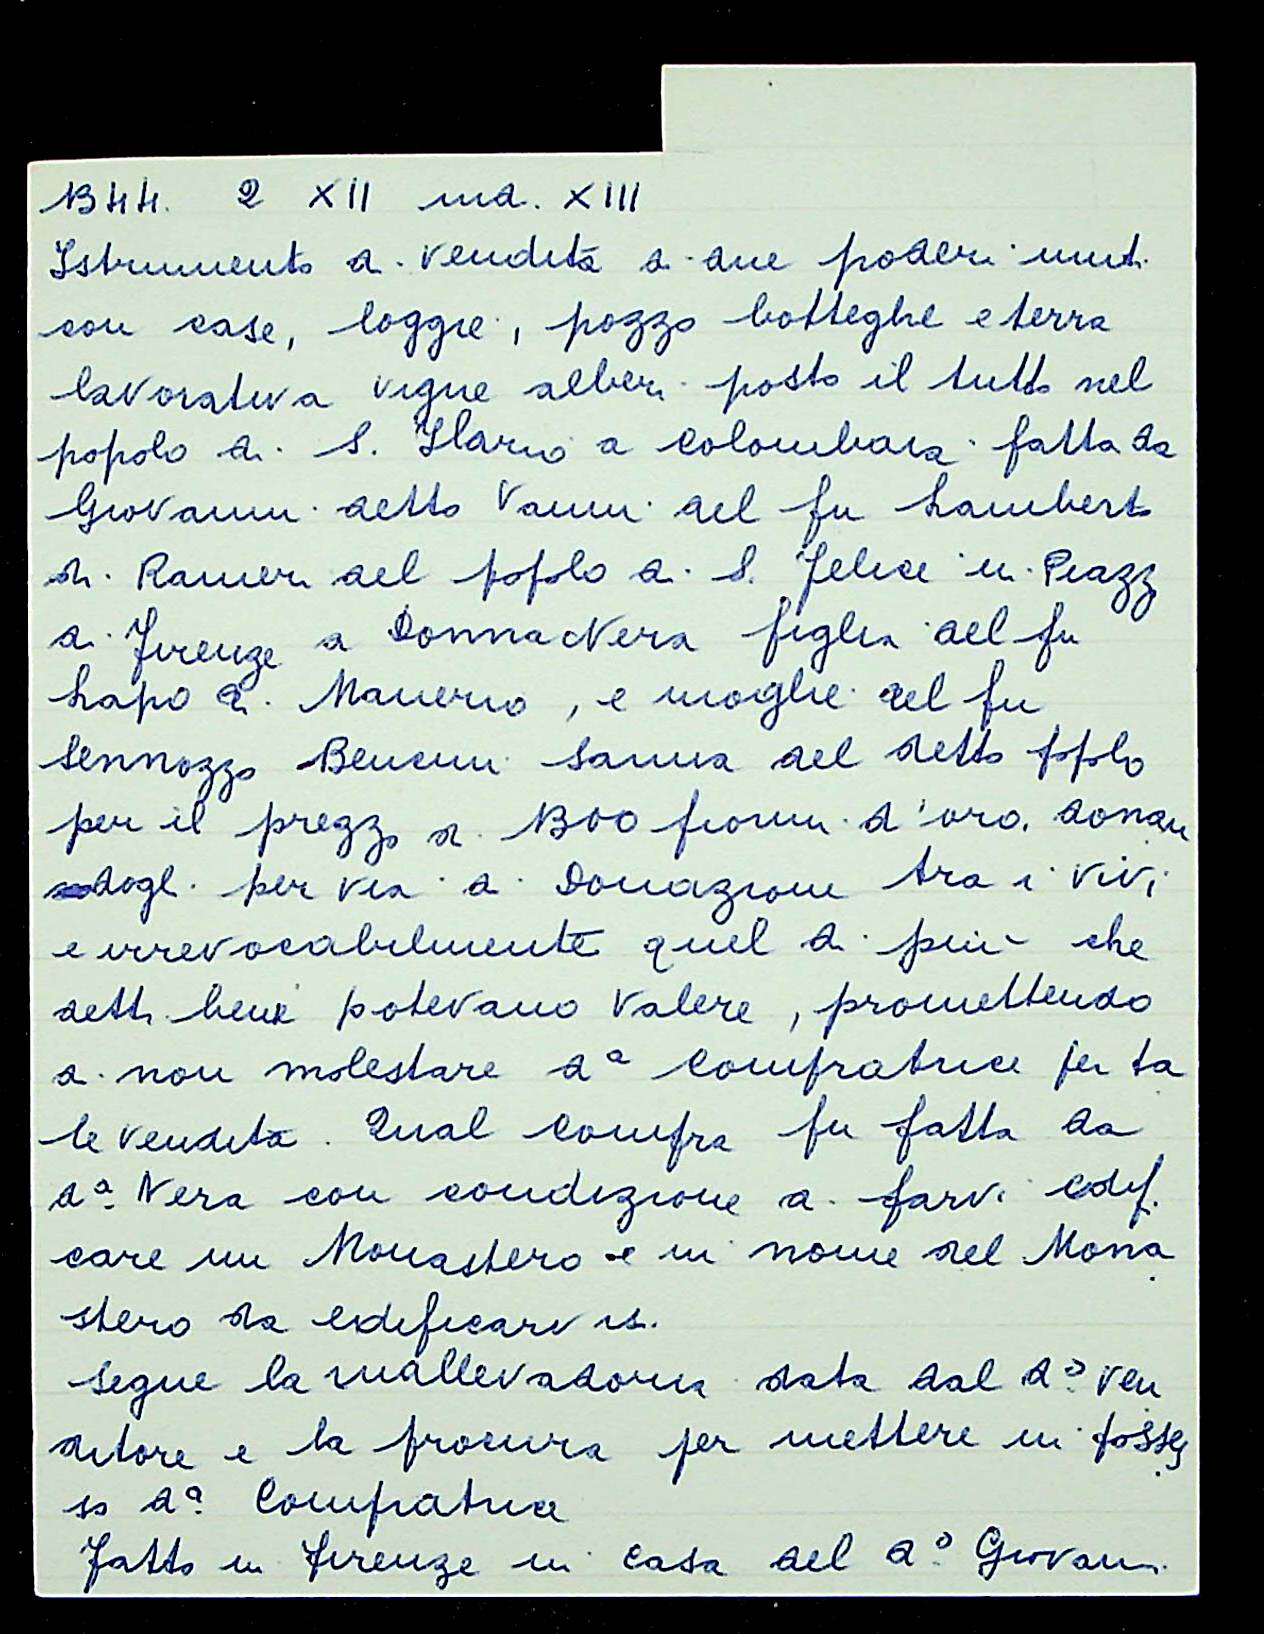 1344. 2 XII ind. XIII
Istrumento di vendita di due poderi uniti
con case, loggie, pozzo botteghe e terra
lavorativa vigne alberi posto il tutto nel
popolo di S. Ilario a Colombaia fatta da
Giovanni detto Vanni del fu Lamberto
di Ranieri del popolo di S. Felice in Piazz
di Firenze a Donna Nera figlia del fu
Lapo di Manerio, e moglie del fu
Sennozzo Bencini Sanna del detto popolo
per il prezzo di 1300 fiorini d'oro, donan
dogli per via di Donazione tra i vivi
e irrevocabilmente quel di più che
detti beni potevano valere, promettendo
di non molestare dª Compratrice per ta
le vendita. Qual Compra fu fatta da
dª Nera con condizione di farvi edifi
care un Monastero e in nome del Mona
stero da edificarvisi.
Segue la mallevadoria data dal dº ven
ditore e la procura per mettere in posses
so dª Compratrice
Fatto in Firenze in casa del dº Giovanni